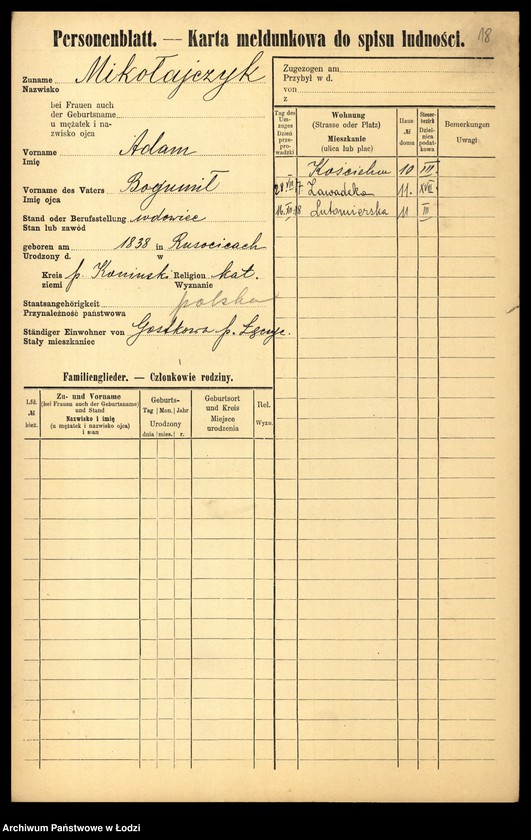 18
Personenblatt. — Karta meldunkowa do spisu ludności.
Zuname Mikołajczyk
Nazwisko
bei Frauen auch
der Geburtsname
u mężatek i na-
zwisko ojca
Vorname Adam
Imię
Vorname des Vaters Bogumił
Imię ojca
Stand oder Berufsstellung wdowiec
Stan lub zawód
geboren am 1838 in Rusocicach
Urodzony d. w
Kreis p. Koniński Religion kat.
ziemi Wyznanie
Staatsangehörigkeit polska
Przynależność państwowa
Ständiger Einwohner von Gostkowa p. Łęczyc.
Stały mieszkaniec
Familienglieder. — Członkowie rodziny.
Lfd. № bież.
Zu- und Vorname
(bei Frauen auch der Geburtsname)
und Stand
Nazwisko i imię
(u mężatek i nazwisko ojca)
i stan
Geburts-
Tag Mon. Jahr
Urodzony
dnia mies. r.
Geburtsort
und Kreis
Miejsce
urodzenia
Rel.
Wyzn.
Zugezogen am
Przybył w d.
von
z
Tag des
Um-
zuges
Dzień
prze-
pro-
wadzki
Wohnung
(Strasse oder Platz)
Mieszkanie
(ulica lub plac)
Haus
№
domu
Steuer-
bezirk
Dziel-
nica
podat-
kowa
Bemerkungen
Uwagi
Kościelna 10 III.
28 VII 17 Zawadzka 11. XVII
16. XII 18 Lutomierska 11 III
Archiwum Państwowe w Łodzi